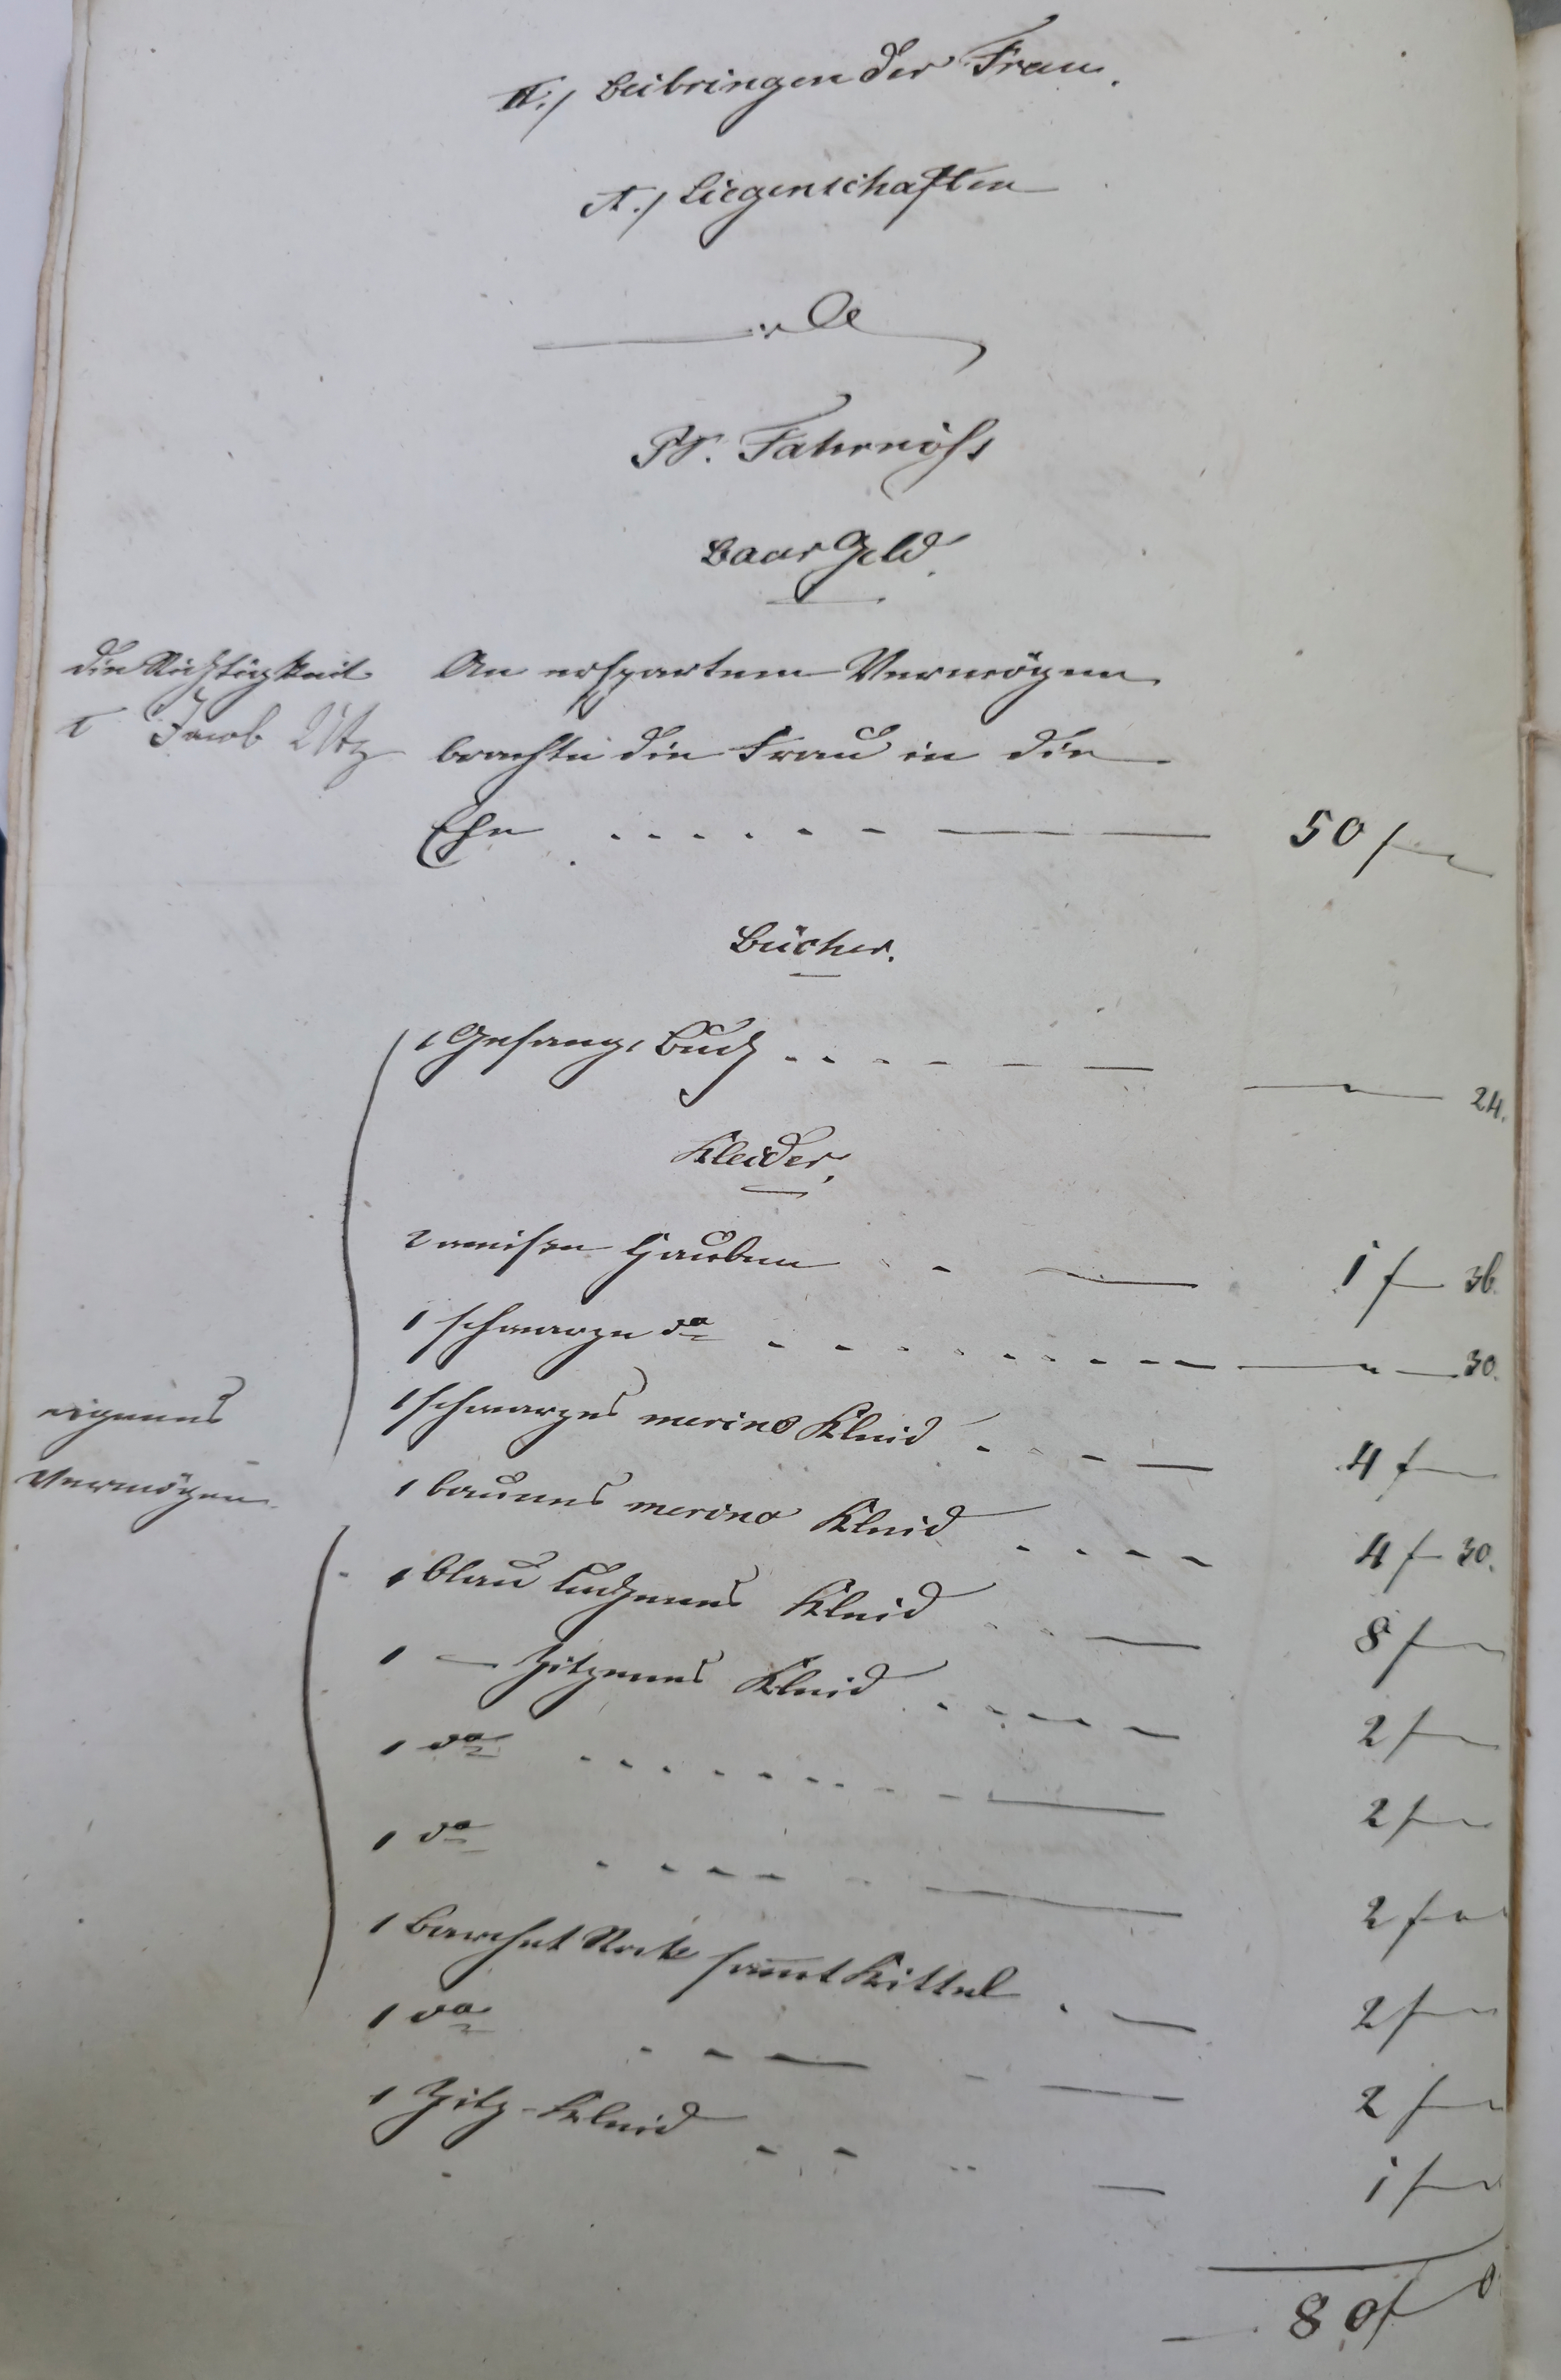 II./ Beibringen der Frau.
A./ Liegenschaften
B. Fahrniß
Baar Geld.
die Richtigkeit
T Jacob Utz
An erspartem Vermögen
brachte die Frau in die
Ehe . . . . . . 50 f
Bücher.
1 Gesang Buch . . . . . 24.
Kleider.
2 weiße Hauben 1 f 36.
1 schwarze do . . . . . . . . 30.
1 schwarzes merino Kleid . . . 4 f
eigenes
Vermögen
1 braunes merino Kleid . . . . 4 f 30.
1 blau tuchenes Kleid 8 f
1 — Zitzenes Kleid . . . . . 2 f
1 do . . . . . . . . 2 f
1 do . . . . 2 f
1 Barchet Rock sammt Kittel . 2 f
1 do . . . 2 f
1 Zitz-Kleid . . 1 f
80 f